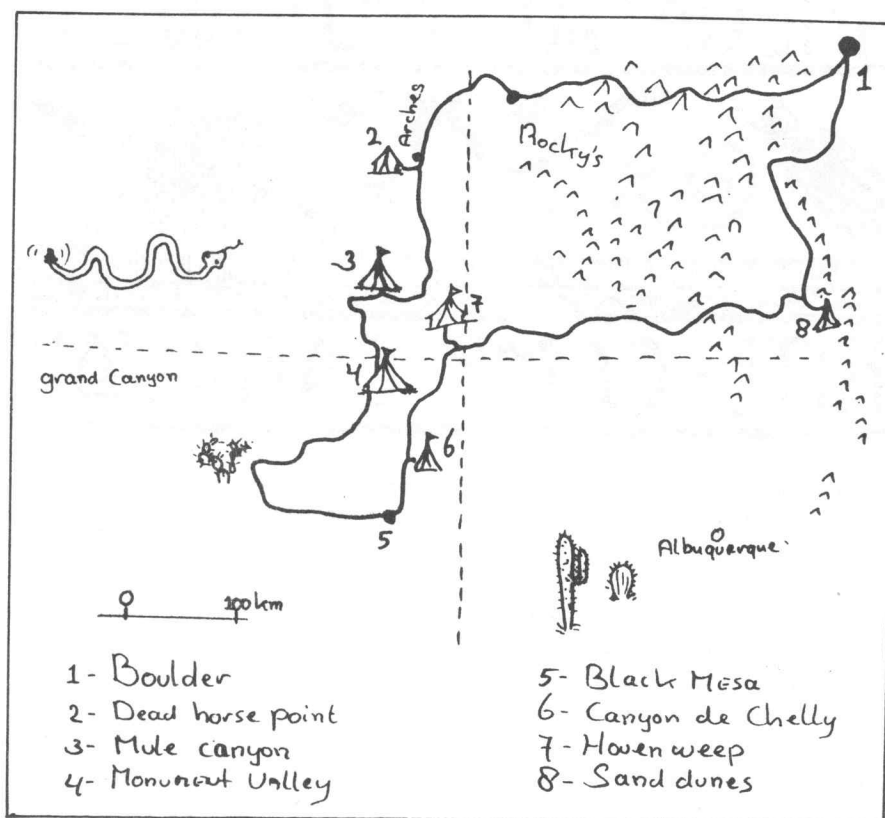 1
Arches
2
Rocky's
3
7
8
grand Canyon
4
6
5
Albuquerque.
0 100km
1- Boulder
2- Dead horse point
3- Mule canyon
4- Monument Valley
5- Black Mesa
6- Canyon de Chelly
7- Hovenweep
8- Sand dunes